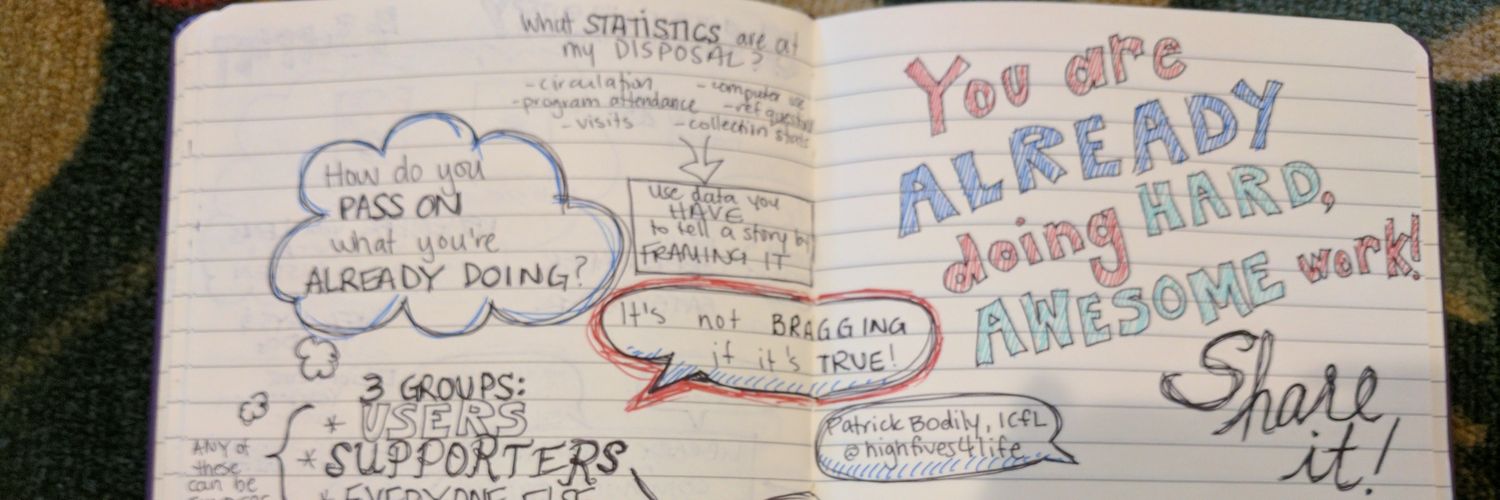 What STATISTICS are at
my DISPOSAL?
- circulation
- computer use
- program attendance
- ref questions
- visits
- collection stats
use data you
HAVE
to tell a story by
FRAMING IT
How do you
PASS ON
what you're
ALREADY DOING?
It's not BRAGGING
if it's TRUE!
3 GROUPS:
* USERS
* SUPPORTERS
* EVERYONE ELSE
ANY of
these
can be
You are
ALREADY
doing HARD,
AWESOME work!
Share
it!
Patrick Bodily, ICfL
@highfives4life